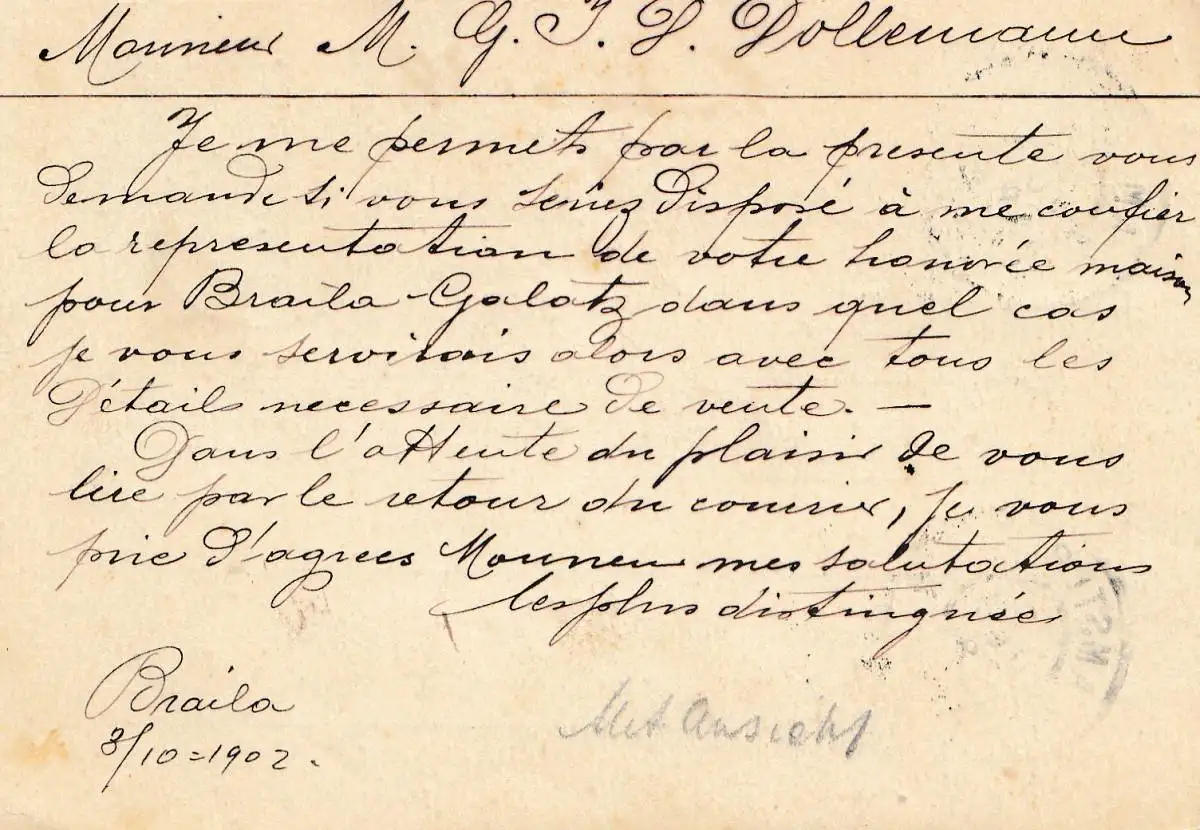 Monsieur M. G. J. D. Dollemann
Je me permets par la presente vous
demande si vous seriez disposé à me confier
la representation de votre honorée maison
pour Braila-Galatz dans quel cas
je vous servirais alors avec tous les
Détails necessaire de vente. —
Dans l'attente du plaisir de vous
lire par le retour du courrier, je vous
prie d'agrees Monsieur mes salutations
les plus distinguée
Braila
3/10=1902.
Mit Ansicht